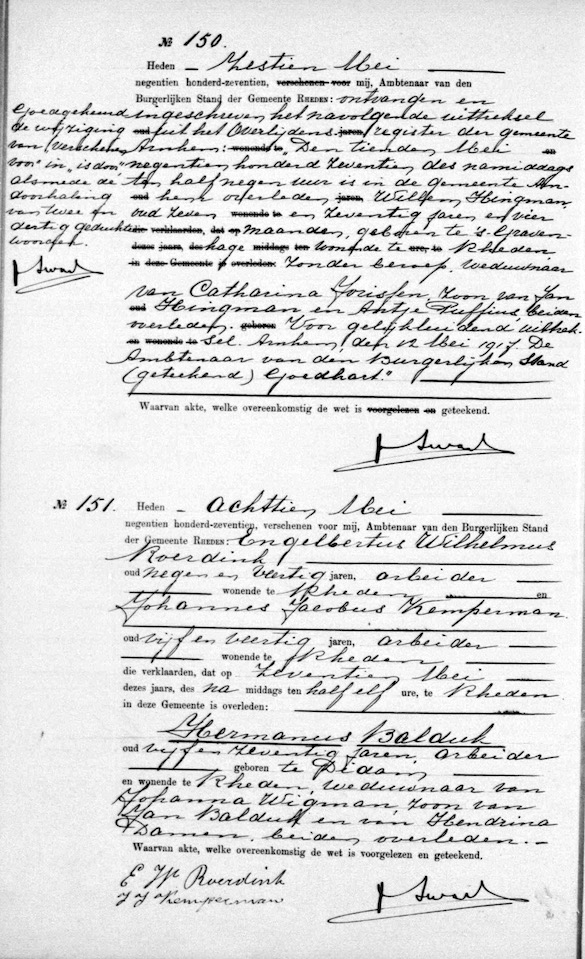 № 150.
Heden – Zestien Mei
negentien honderd-zeventien, verschenen voor mij, Ambtenaar van den
Burgerlijken Stand der Gemeente RHEDEN: ontvangen en
ingeschreven het navolgende uittreksel
oud uit het Overlijdens jaren, register der gemeente
Arnhem: wonende te „Den tienden Mei en
negentien honderd zeventien des namiddags
ten half negen uur is in de gemeente Arn-
oud hem overleden jaren, Willem Hingman,
oud zeven wonende te en zeventig jaren en vier
die verklaarden, dat op maanden, geboren te 's Graven-
dezes jaars, des hage middags ten wonende te ure, te Rheden,
in deze Gemeente is overleden: zonder beroep, weduwnaar
van Catharina Jorissen, zoon van Jan
oud Hingman en Antje Puffius, beiden
overleden. geboren Voor gelijkluidend uittrek-
en wonende te sel. Arnhem, den 12 Mei 1917. De
Ambtenaar van den Burgerlijken Stand
(geteekend) Goedhart."
Waarvan akte, welke overeenkomstig de wet is voorgelezen en geteekend.
Goedgekeurd
de wijziging
van „verschenen
voor" in „is door",
alsmede de
doorhaling
van twee en
dertig gedrukte
woorden.
№ 151. Heden – Achttien Mei
negentien honderd-zeventien, verschenen voor mij, Ambtenaar van den Burgerlijken Stand
der Gemeente RHEDEN: Engelbertus Wilhelmus
Roerdink
oud negen en veertig jaren, arbeider
wonende te Rheden en
Johannes Jacobus Kemperman
oud vijf en veertig jaren, arbeider
wonende te Rheden
die verklaarden, dat op Zeventien Mei
dezes jaars, des na middags ten half elf ure, te Rheden
in deze Gemeente is overleden:
Hermanus Balduk
oud vijf en zeventig jaren, arbeider
geboren te Didam
en wonende te Rheden, weduwnaar van
Johanna Wigman, zoon van
Jan Balduk en van Hendrina
Damen, beiden overleden. –
Waarvan akte, welke overeenkomstig de wet is voorgelezen en geteekend.
E W Roerdink
J J Kemperman